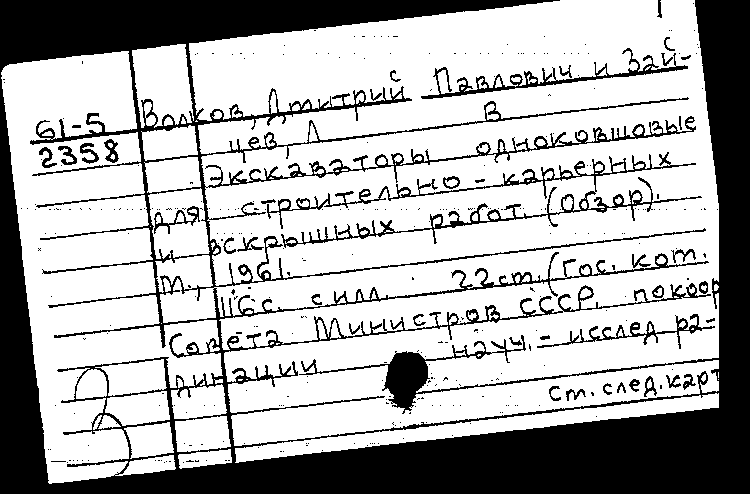 61-5
2358
Волков, Дмитрий Павлович и Зай-
цев, Л В
Экскаваторы одноковшовые
для строительно - карьерных
и вскрышных работ. (Обзор).
М., 1961.
116с. с илл. 22см. (Гос. ком.
Совета Министров СССР. по коор
динации науч. - исслед ра-
См. след. карт
3